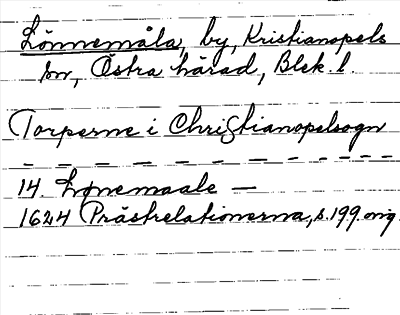 Lönnemåla, by, Kristianopels
sn, Östra härad, Blek. l.
Torperne i Christianopelsogn
— — — — — — — — — — — —
14. Lønemaale —
1624 Prästrelationerna, s. 199. orig.